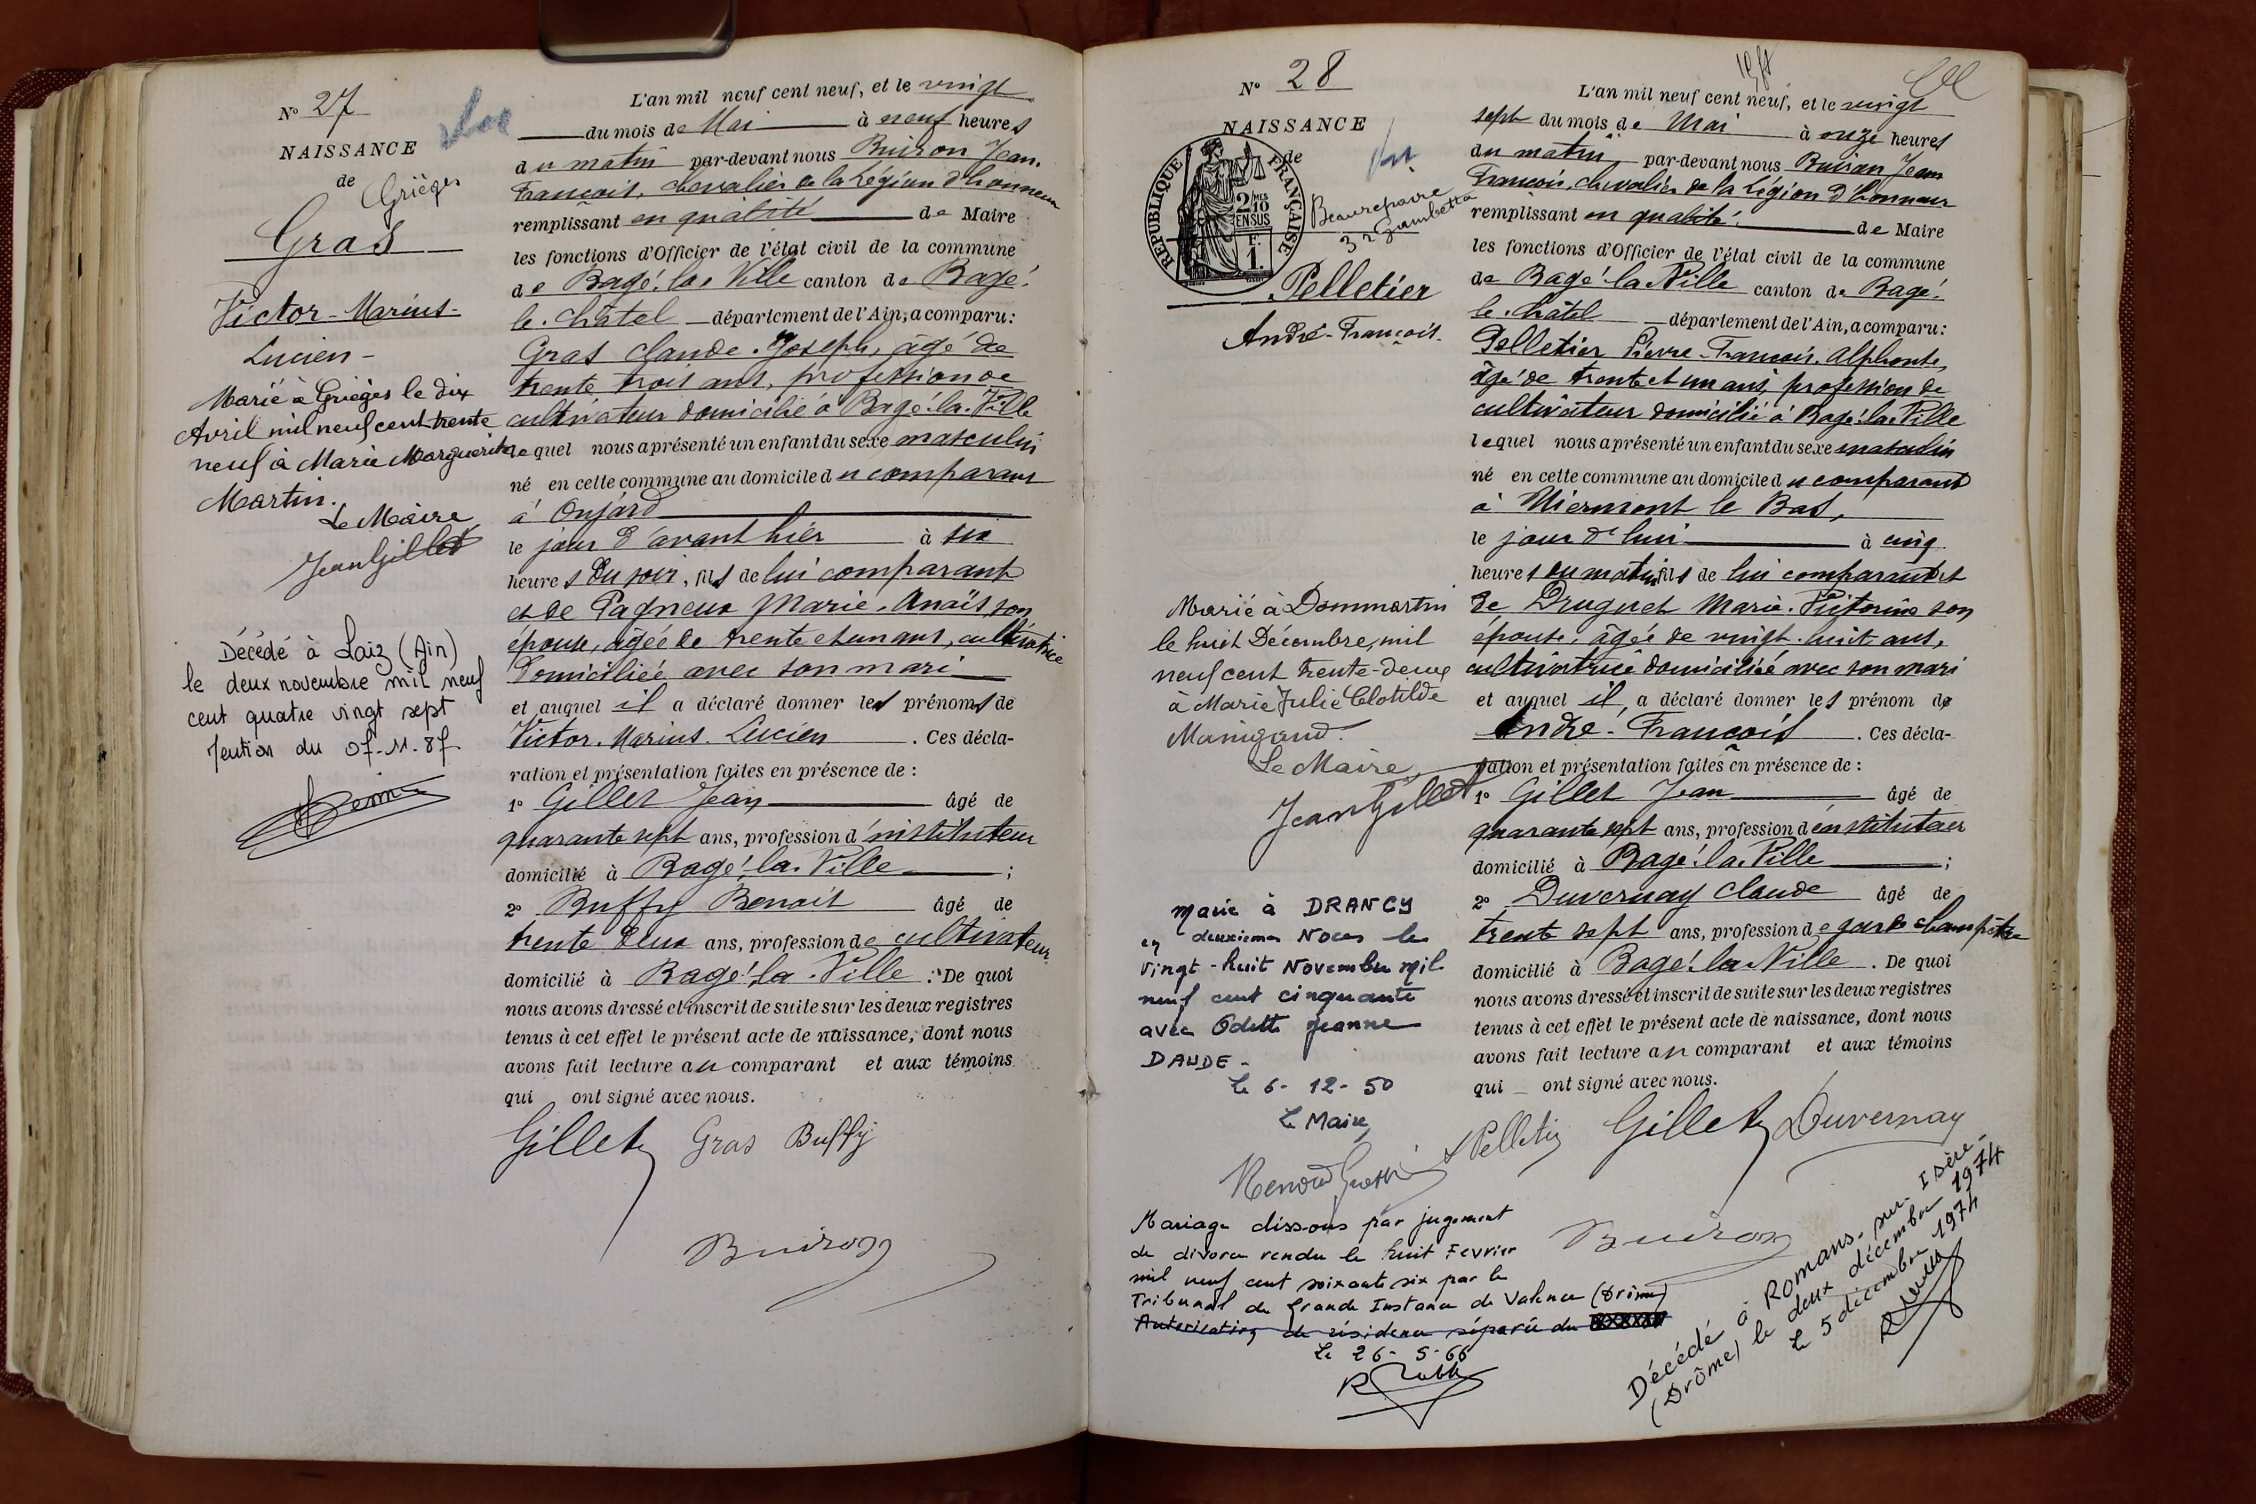 Nº 27
NAISSANCE
de
Grièges
Gras
Victor-Marius-
Lucien-
Marié à Grièges le dix
Avril mil neuf cent trente
neuf à Marie Marguerite
Martin.
Le Maire
Jean Gillet
Décédé à Laiz (Ain)
le deux novembre mil neuf
cent quatre vingt sept
Mention du 07-11-87
L'an mil neuf cent neuf, et le vingt
du mois de Mai à neuf heures
du matin par-devant nous Buiron Jean
François, chevalier de la Légion d'honneur
remplissant en qualité de Maire
les fonctions d'Officier de l'état civil de la commune
de Bagé-la-Ville canton de Bagé-
le-Châtel département de l'Ain, a comparu:
Gras Claude-Joseph, âgé de
trente trois ans, profession de
cultivateur domicilié à Bagé-la-Ville
lequel nous a présenté un enfant du sexe masculin
né en cette commune au domicile du comparant
à Onjard
le jour d'avant hier à six
heures du soir, fils de lui comparant
et de Pagneux Marie-Anaïs, son
épouse, âgée de trente et un ans, cultivatrice
domiciliée avec son mari
et auquel il a déclaré donner les prénoms de
Victor-Marius-Lucien. Ces décla-
ration et présentation faites en présence de :
1º Gillet Jean âgé de
quarante sept ans, profession d'instituteur
domicilié à Bagé-la-Ville ;
2º Buffy Benoit âgé de
trente deux ans, profession de cultivateur
domicilié à Bagé-la-Ville : De quoi
nous avons dressé et inscrit de suite sur les deux registres
tenus à cet effet le présent acte de naissance, dont nous
avons fait lecture au comparant et aux témoins
qui ont signé avec nous.
Gillet Gras Buffy
Buiron
Nº 28
NAISSANCE
de
REPUBLIQUE FRANÇAISE
2/10 MES
EN SUS
F.
1.
Beaurepaire
32 Gambetta
Pelletier
André-François.
Marié à Dommartin
le huit Décembre, mil
neuf cent trente-deux
à Marie Julie Clotilde
Manigand.
Le Maire,
Jean Gillet
Marié à DRANCY
en deuxièmes Noces le
vingt-huit Novembre mil
neuf cent cinquante
avec Odette Jeanne
DAUDE-
Le 6-12-50
Le Maire
Mariage dissous par jugement
de divorce rendu le huit Fevrier
mil neuf cent soixante six par le
Tribunal de Grande Instance de Valence (Drôme)
Autorisation de résidence séparée du
Le 26-5-66
L'an mil neuf cent neuf, et le vingt
sept du mois de Mai à onze heures
du matin, par-devant nous Buiron Jean
François, chevalier de la Légion d'honneur
remplissant en qualité de Maire
les fonctions d'Officier de l'état civil de la commune
de Bagé-la-Ville canton de Bagé-
le-Châtel département de l'Ain, a comparu:
Pelletier Pierre-François-Alphonse,
âgé de trente et un ans, profession de
cultivateur domicilié à Bagé-la-Ville
lequel nous a présenté un enfant du sexe masculin
né en cette commune au domicile du comparant
à Miermont le Bas,
le jour d'hui à cinq
heures du matin fils de lui comparant et
de Druguet Marie-Victorine son
épouse, âgée de vingt-huit ans,
cultivatrice domiciliée avec son mari
et auquel il a déclaré donner les prénom de
André-François. Ces décla-
ration et présentation faites en présence de :
1º Gillet Jean âgé de
quarante sept ans, profession d'instituteur
domicilié à Bagé-la-Ville ;
2º Duvernay Claude âgé de
trente sept ans, profession de garde champêtre
domicilié à Bagé-la-Ville. De quoi
nous avons dressé et inscrit de suite sur les deux registres
tenus à cet effet le présent acte de naissance, dont nous
avons fait lecture au comparant et aux témoins
qui ont signé avec nous.
Pelletier Gillet Duvernay
Buiron
Décédé à Romans-sur-Isère
(Drôme) le deux décembre 1974
Le 5 décembre 1974